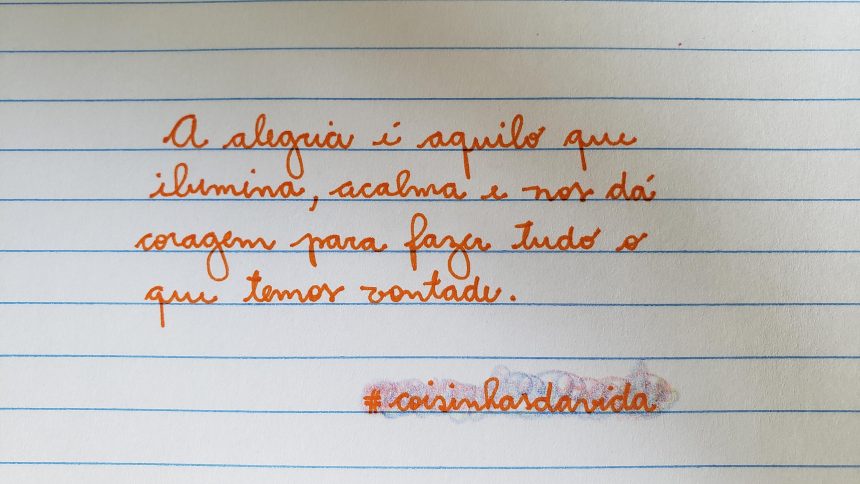 A alegria é aquilo que
ilumina, acalma e nos dá
coragem para fazer tudo o
que temos vontade.
#coisinhasdavida